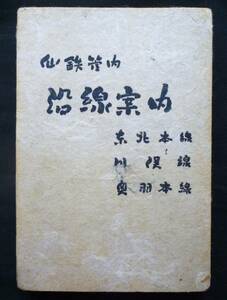 仙鉄管内
沿線案内
东北本線
川俣線
奥羽本線